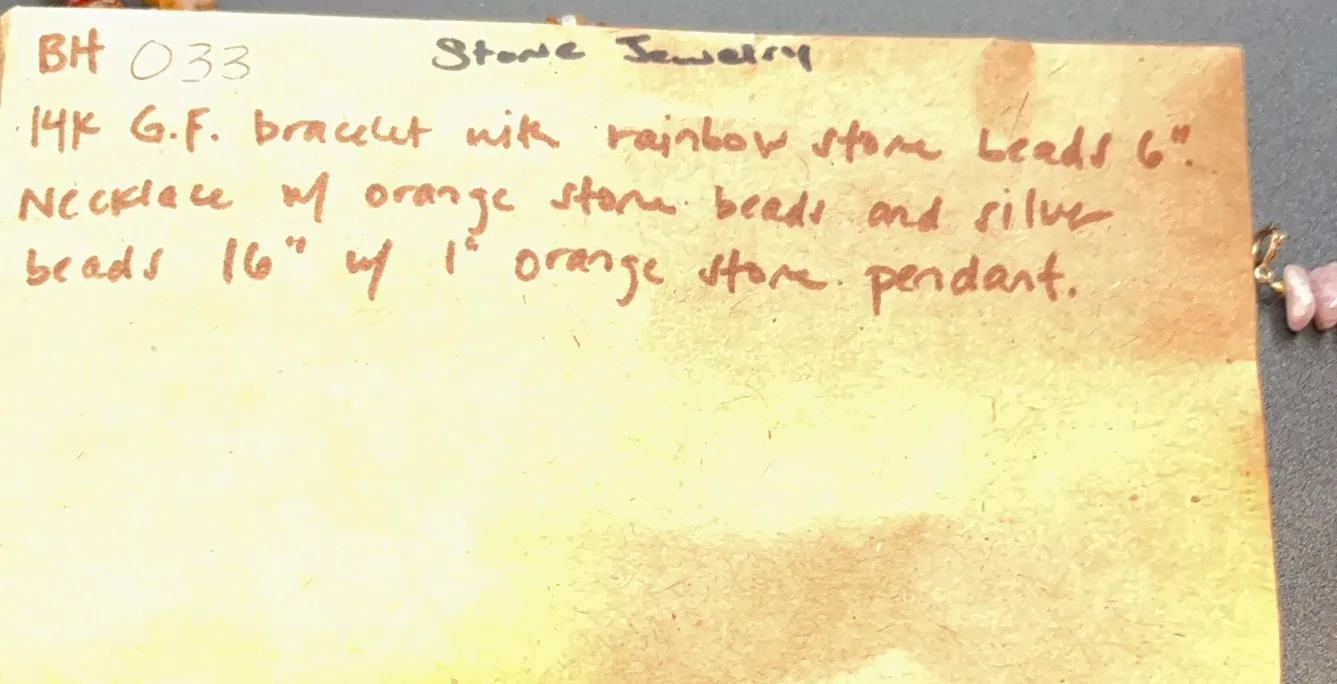 BH 033 Stone Jewelry
14K G.F. bracelet with rainbow stone beads 6".
Necklace w/ orange stone beads and silver
beads 16" w/ 1" orange stone pendant.